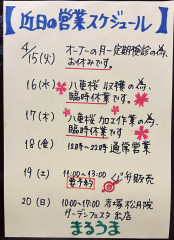 【近日の営業スケジュール】
4/15(火) オーナーの月一定期検診の為、
お休みです。
16(水) 八重桜収穫の為、
臨時休業です。
17(木) 八重桜加工作業の為、
臨時休業です。
18(金) 12時〜22時 通常営業
19(土) 11:00〜13:00 販売
要予約
20(日) 10:00〜17:00 赤塚松月院
ガーデンフェスタ出店
まろうま